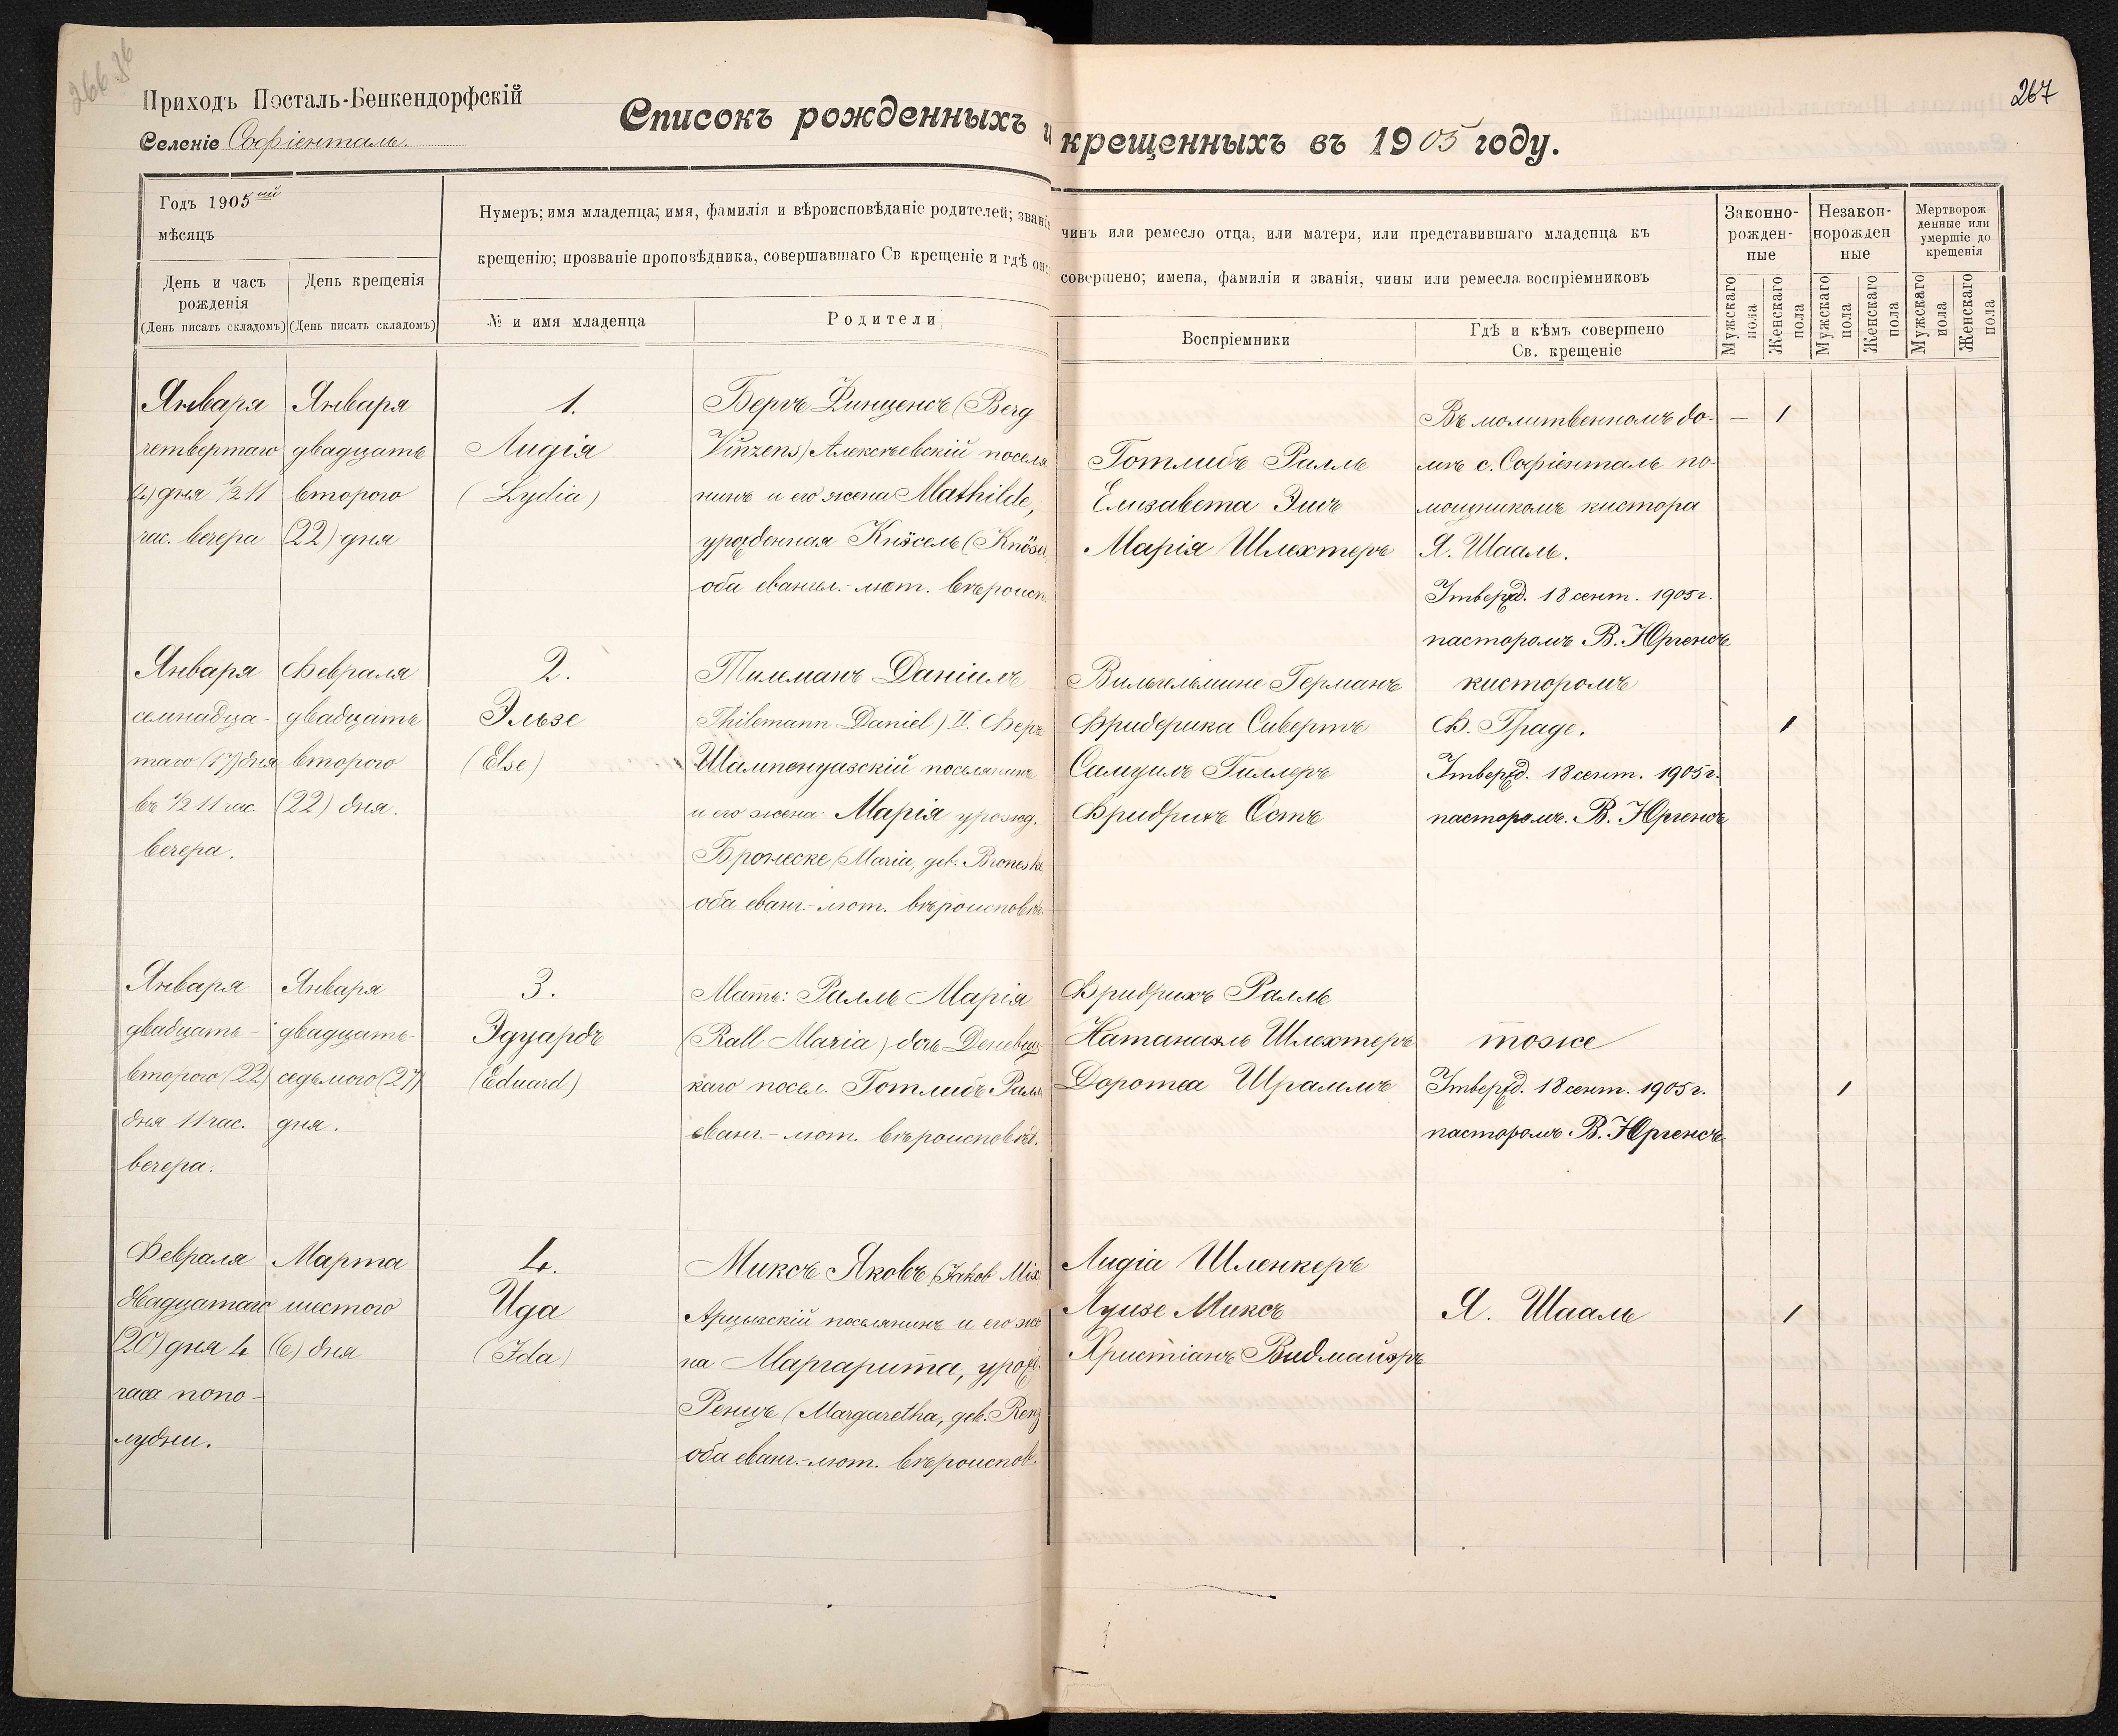 266 об
267
Приходъ Посталь-Бенкендорфскій
Селеніе Софіенталь.
Списокъ рожденныхъ и крещенныхъ въ 1905 году.
Годъ 1905 ый
мѣсяцъ
День и часъ
рожденія
(День писать складомъ)
День крещенія
(День писать складомъ)
Нумеръ; имя младенца; имя, фамилія и вѣроисповѣданіе родителей; званіе
чинъ или ремесло отца, или матери, или представившаго младенца къ
крещенію; прозваніе проповѣдника, совершавшаго Св крещеніе и гдѣ оно
совершено; имена, фамиліи и званія, чины или ремесла воспріемниковъ
№ и имя младенца
Родители
Воспріемники
Гдѣ и кѣмъ совершено
Св. крещеніе
Законно-
рожден-
ные
Незакон-
норожден
ные
Мертворож-
денные или
умершіе до
крещенія
Мужскаго
пола
Женскаго
пола
Мужскаго
пола
Женскаго
пола
Мужскаго
пола
Женскаго
пола
Января
четвертаго
(4) дня 1/2 11
час. вечера
Января
двадцать
второго
(22) дня
1.
Лидія
(Lydia)
Бергъ Финценсъ (Berg
Vinzens) Алексѣевскій поселя
нинъ и его жена Mathilde,
урожденная Кнӧсель (Knösel
оба евангел.-лют. вѣроисп
Готлибъ Ралль
Елизавета Эшъ
Марія Шлехтеръ
Въ молитвенномъ до-
мѣ с. Софіенталь по-
мощникомъ кистора
Я. Шааль.
Утвержд. 18 сент. 1905 г.
пасторомъ В. Юргенсъ
— 1
Января
семнадца-
таго (17) дня
въ 1/2 11 час.
вечера.
Февраля
двадцать
второго
(22) дня.
2.
Эльзе
(Else)
Тилеманъ Даніилъ
Thilemann Daniel) II. Фер
Шампенуазскій поселянинъ
и его жена Марія урожд.
Бронеске (Maria, geb. Broneske
оба еванг.-лют. вѣроисповѣ
Вильгельмине Германъ
Фридерика Сивертъ
Самуилъ Гиллеръ
Фридрихъ Остъ
кисторомъ
Ф. Траде.
Утвержд. 18 сент. 1905 г.
пасторомъ. В. Юргенсъ
1
Января
двадцать-
второго (22)
дня 11 час.
вечера.
Января
двадцать-
седьмого (27)
дня.
3.
Эдуардъ
(Eduard)
Мать: Ралль Марія
(Rall Maria) дочь Деневиц
каго посел. Готлибъ Ралль
еванг.-лют. вѣроисповѣд.
Фридрихъ Ралль
Натанаэль Шлехтеръ
Доротеа Шраммъ
тоже
Утвержд. 18 сент. 1905 г.
пасторомъ В. Юргенсъ
1
Февраля
двадцатаго
(20) дня 4
часа попо-
лудни.
Марта
шестого
(6) дня
4.
Ида
(Ida)
Миксъ Яковъ (Jakob Mix
Арцызскій поселянинъ и его же
на Маргарита, урожд.
Ренцъ (Margaretha, geb. Renz
оба еванг.-лют. вѣроисповѣ.
Лидіа Шленкеръ
Луизе Миксъ
Христіанъ Видмайэръ
Я. Шааль
1